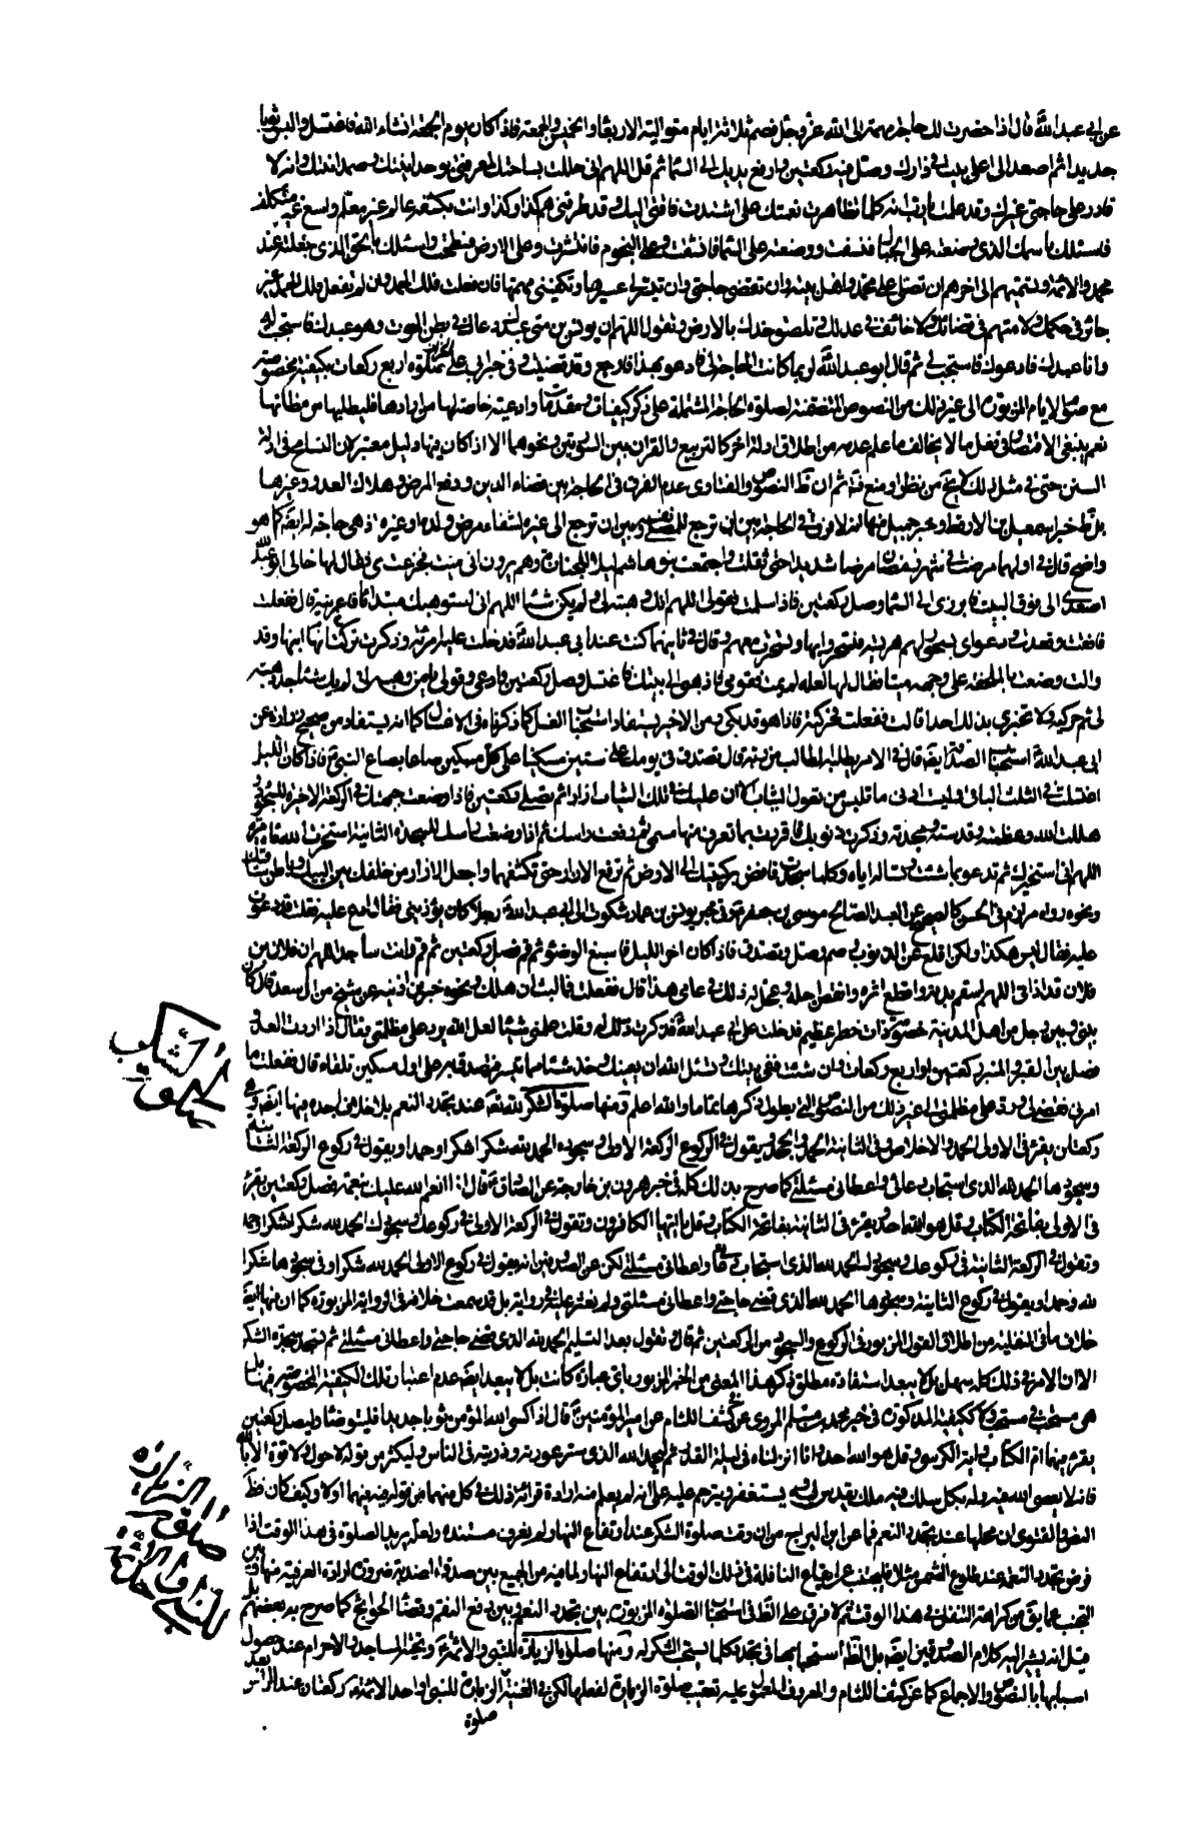 عن ابي عبد الله قال اذا حضرت لك حاجة مهمة الى الله عز وجل فصم ثلاثة ايام متوالية الاربعاء والخميس والجمعة فاذا كان يوم الجمعة انشاء الله فاغتسل والبس ثوبا
جديدا ثم اصعد الى اعلى بيت في دارك وصل فيه ركعتين وارفع يديك الى السماء ثم قل اللهم اني حللت بساحتك لمعرفتي بوحدانيتك وصمدانيتك وانه لا
قادر على حاجتي غيرك وقد علمت يا رب انه كلما تظاهرت نعمتك على اشتدت فاقتي اليك وقد طرقني هم كذا وكذا وانت بكشفه عالم غير معلم واسع غير متكلف
فاسئلك باسمك الذي وضعته على الجبال فنسفت ووضعته على السماء فانشقت وعلى النجوم فانتشرت وعلى الارض فسطحت واسئلك بالحق الذي جعلته عند
محمد والائمة وتسميهم الى اخرهم ان تصلي على محمد واهل بيته وان تقضي حاجتي وان تيسر لي عسيرها وتكفيني مهمتها فان فعلت فلك الحمد وان لم تفعل فلك الحمد غير
جائر في حكمك ولا متهم في قضائك ولا خائف في عدلك وتلصق خدك بالارض وتقول اللهم ان يونس بن متى عبدك دعاك في بطن الحوت وهو عبدك فاستجبت له
وانا عبدك فادعوك فاستجب لي ثم قال ابو عبد الله لربما كانت الحاجة لي فادعو بهذا فارجع وقد قضيت وفي خبر ابي علي صلوة اربع ركعات بكيفية مخصوصة
مع صوم الايام المزبورة الى غير ذلك من النصوص المتضمنة لصلوة الحاجة المشتملة على ذكر كيفيات ومقدمات وادعية خاصة لها من ارادها فليطلبها من مظانها
نعم ينبغي الاقتصار في نفل ما لا يخالف ما علم عدمه من اطلاق ادلة اخر كالتربيع والقران بين السورتين ونحوهما الا اذا كان فيها دليل معتبر لان التسامح في ادلة
السنن حتى في مثل ذلك لا يخ من نظر او منع ثم ان ظ النصوص والفتاوى عدم الفرق في الحاجة بين قضاء الدين ودفع المرض وهلاك العدو وغيرها
بل ظ خبر اسمعيل بن الارقط وخبر جميل منها انه لا فرق في الحاجة بين ان ترجع للمصلي وبين ان ترجع الى غيره لشفاء مرض ولده او غيره اذ هي حاجة له ايضا كما هو
واضح قال في اولهما مرضت في شهر رمضان مرضا شديدا حتى ثقلت واجتمعت بنو هاشم ليلا للجنازة وهم يرون اني ميت فجزعت امي فقال لها خالي ابو عبد الله
اصعدي الى فوق البيت فابرزي الى السماء وصلي ركعتين فاذا سلمت فقولي اللهم انك وهبته لي ولم يكن شيئا اللهم اني استوهبك مبتدئا فاعرنيه قال ففعلت
فافقت وقعدت ودعوا بسحور لهم هريسة فتسحروا بها وتسحرت معهم وقال في ثانيهما كنت عند ابي عبد الله فدخلت عليه امرئة وذكرت انها تركت ابنها وقد
قالت وضعت بالملحفة على وجهه ميتا فقال لها لعله لم يمت فقومي فاذهبي الى بيتك فاغتسلي وصلي ركعتين وادعي وقولي يا من وهبه لي ولم يك شيئا جدد هبته
لي ثم حركيه ولا تخبري بذلك احدا قالت ففعلت فحركته فاذا هو قد بكى ومن الاخير يستفاد استحباب الغسل كما ذكرناه في الاغسال كما انه يستفاد من صحيح زرارة عن
ابي عبد الله استحباب الصدقة ايضا قال في الامر يطلبه الطالب من ربه قال تصدق في يومك على ستين مسكينا على كل مسكين صاعا بصاع النبي فاذا كان الليل
اغتسلت في الثلث الباقي ولبست ادنى ما تلبس من تعول الثياب الا ان عليك في تلك الثياب ازارا ثم تصلي ركعتين فاذا وضعت جبهتك في الركعة الاخيرة للسجود
هللت الله وعظمته وقدسته ومجدته وذكرت ذنوبك فاقررت بما تعرف منها مسمى ثم رفعت راسك ثم اذا وضعت راسك للسجدة الثانية استخرت الله مأة مرة
اللهم اني استخيرك ثم تدعو بما شئت وتساله اياه وكلما سجدت فافض بركبتيك الى الارض ثم ترفع الازار حتى تكشفها واجعل الازار من خلفك بين اليتيك وباطن ساقيك
ونحوه رواه مرازم في الحسن كالصحيح عن العبد الصالح موسى بن جعفر وفي خبر يونس بن عمار شكوت الى ابي عبد الله رجلا كان يؤذيني فقال ادع عليه فقلت قد دعوت
عليه فقال ليس هكذا ولكن اقلع عن الذنوب وصم وصل وتصدق فاذا كان اخر الليل فاسبغ الوضوء ثم قم فصل ركعتين ثم قل وانت ساجد اللهم ان فلان بن
فلان قد اذاني اللهم اسقم بدنه واقطع اثره وانقص اجله وعجل له ذلك في عامه هذا قال ففعلت فما لبث ان هلك ونحوه خبر ابن اذينة عن شيخ من ال سعد قال كان
بيني وبين رجل من اهل المدينة خصومة ذات خطر عظيم فدخلت على ابي عبد الله فذكرت ذلك له وقلت علمني شيئا لعل الله يرد على مظلمتي فقال اذا اردت العدو
فصل بين القبر والمنبر ركعتين او اربع ركعات وان شئت ففي بيتك وتسئل الله ان يعينك وخذ شيئا مما تيسر فتصدق به على اول مسكين تلقاه قال ففعلت ما
امرني فقضي لي ورد على مظلمتي الى غير ذلك من النصوص التي يطول ذكرها بتمامها والله اعلم ومنها صلوة الشكر لله تعالى عند تجدد النعم بلا خلاف اجده فيها ايضا وهي
ركعتان يقرء في الاولى الحمد والاخلاص وفي الثانية الحمد والجحد ويقول في الركوع الركعة الاولى وسجوده الحمد لله شكرا شكرا وحمدا ويقول في ركوع الركعة الثانية
وسجودها الحمد لله الذي استجاب دعائي واعطاني مسئلتي كما صرح بذلك كله في خبر هرون بن خارجة عن الصادق قال اذا انعم الله عليك بنعمة فصل ركعتين تقرء
في الاولى بفاتحة الكتاب وقل هو الله احد وتقرء في الثانية بفاتحة الكتاب وقل يا ايها الكافرون وتقول في الركعة الاولى في ركوعك وسجودك الحمد لله شكرا شكرا وحمدا
وتقول في الركعة الثانية في ركوعك وسجودك الحمد لله الذي استجاب دعائي واعطاني مسئلتي لكن عن الصدوقين انه يقول في ركوع الاولى الحمد لله شكرا وفي سجودها شكرا
لله وحمدا ويقول في ركوع الثانية وسجودها الحمد لله الذي قضى حاجتي واعطاني مسئلتي ولم نعثر عليه في رواية بل قد سمعت خلافه في الرواية المزبورة كما ان فيها ايضا
خلاف ما في المقنعة من اطلاق القول المزبور في الركوع والسجود من الركعتين ثم قال وتقول بعد التسليم الحمد لله الذي قضى حاجتي واعطاني مسئلتي ثم تسجد سجدة الشكر
الا ان الامر في ذلك كله سهل بل لا يبعد استفادة مطلق ذكر هذا المعنى من الخبر المزبور باي عبارة كانت بل لا يبعد ايضا عدم اعتبار تلك الكيفية المخصوصة فيها بل
هي مستحب في مستحب كالكيفية المذكورة في خبر محمد بن مسلم المروي عن كشف اللثام عن امير المؤمنين قال اذا كسى الله المؤمن ثوبا جديدا فليتوضا وليصل ركعتين
يقرء فيهما ام الكتاب واية الكرسي وقل هو الله احد وانا انزلناه في ليلة القدر ثم ليحمد الله الذي ستر عورته وزينه في الناس وليكثر من قوله لا حول ولا قوة الا بالله
فانه لا يعصي الله فيه وله بكل سلك فيه ملك يقدس له ويستغفر له ويترحم عليه على انه لم يعلم منه ارادة قرائة ذلك في كل منهما من قوله فيهما اولا وكيف كان فظ
النص والفتوى ان محلها عند تجدد النعم فما عن ابن البراج من ان وقت صلوة الشكر عند ارتفاع النهار لم يعرف مستنده ولعله يريد الصلوة في هذا الوقت اذا
فرض تجدد النعمة عند طلوع الشمس مثلا فليجتنب عن ايقاع النافلة في ذلك الوقت الى ارتفاع النهار لما فيه من الجمع بين صدق عندية ضرورة ارادة العرفية منها وبين
التجنب عما يق من كراهة التنفل في هذا الوقت ثم لا فرق على الظ في استحباب الصلوة المزبورة بين تجدد النعم وبين دفع النقم وقضاء الحوائج كما صرح به بعضهم بل
قيل انه يشير اليه كلام الصدوقين ايضا بل الظ استحبابها في تجدد كلما يستحب الشكر له ومنها صلوة الزيارة للنبي والائمة وتحية المساجد والاحرام عند حصول
اسبابها بالنصوص والاجماع كما عن كشف اللثام والمعروف المعمول عليه تعقيب صلوة الزيارة لفعلها لكن في الغنية الزيارة للنبي او احد الائمة ركعتان عند الراس بعد
صلوة
صلوة الشكر
صلوة الزيارة
للنبي والائمة